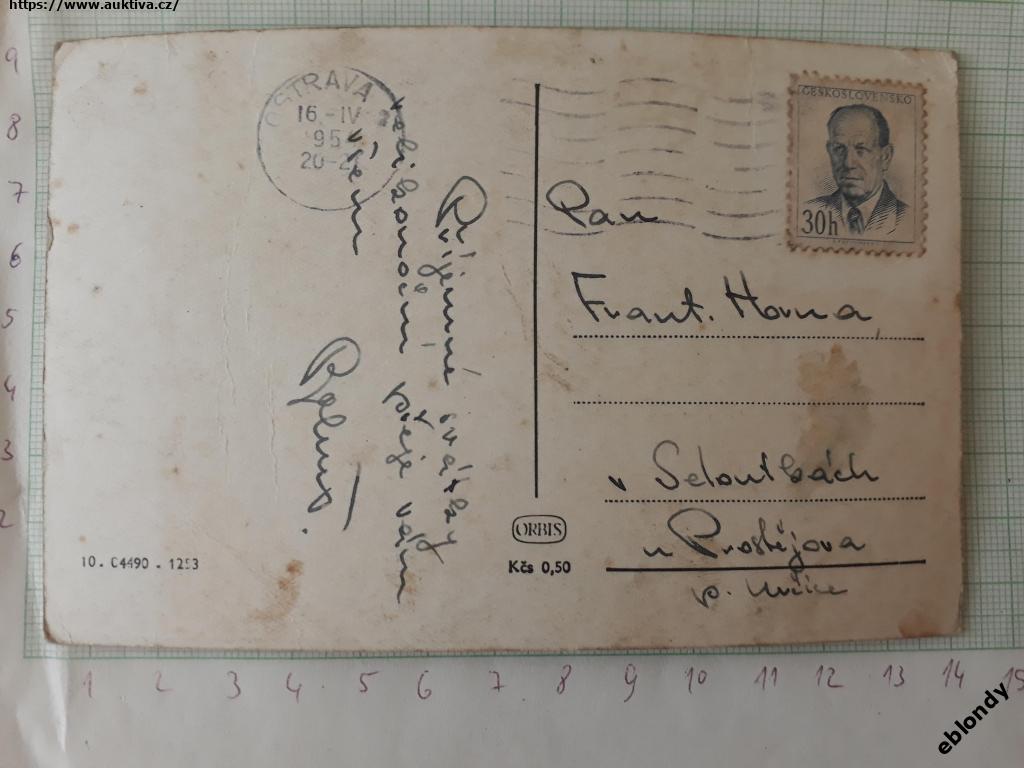 https://www.auktiva.cz/
OSTRAVA
16.-IV
95
20-2
Příjemné svátky
velikonoční přeje vám
všem
ČESKOSLOVENSKO
30h
Pan
Frant. Horna
v Seloutkách
u Prostějova
p. Určice
ORBIS
Kčs 0,50
10. C4490 . 1253
9
8
7
6
5
4
3
2
1 2 3 4 5 6 7 8 9 10 11 12 13 14 15
eblondy